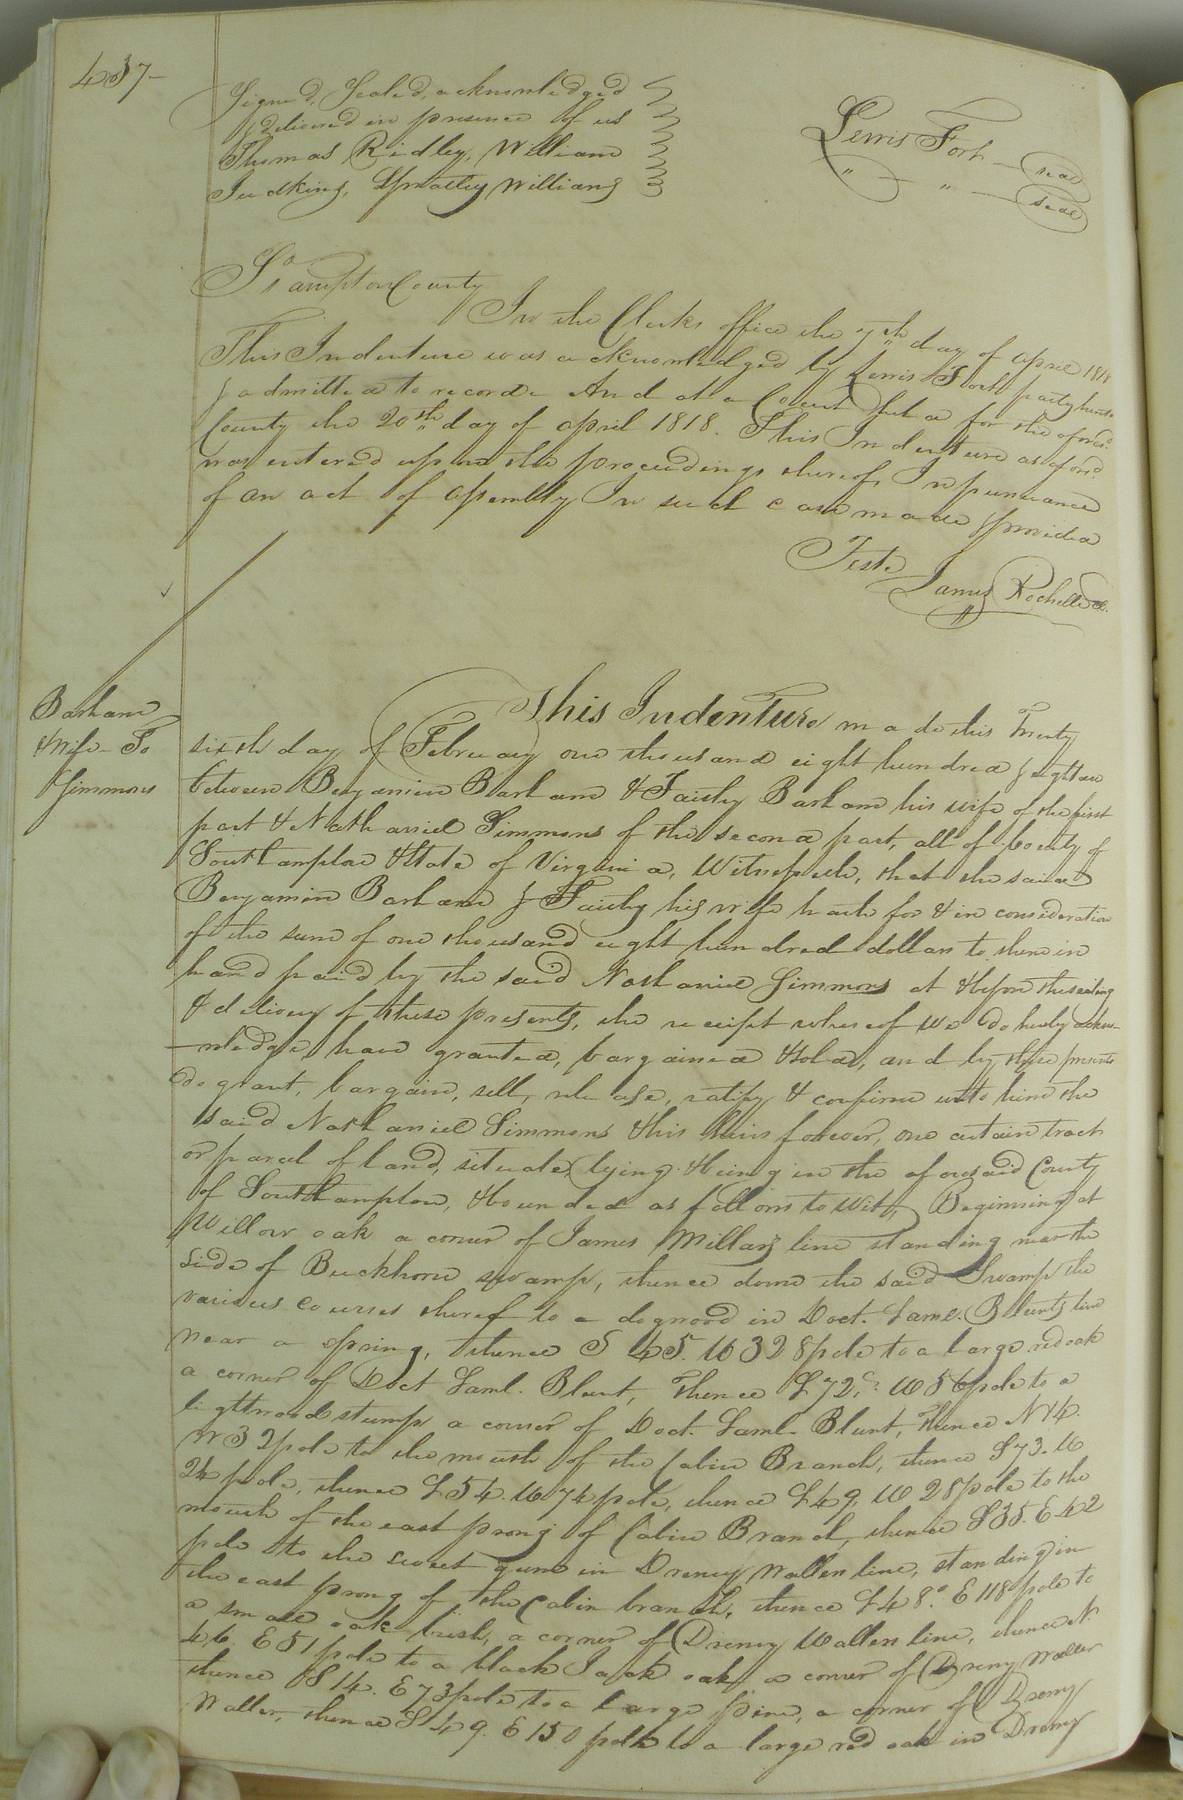 437-
Signed, Sealed, acknowledged
& delivered in presence of us
Thomas Ridley, William
Judkins, Williams
Lewis Fort seal
" " seal
So.ampton County
In the Clerks office the 7th day of april 1818
This Indenture was acknowledged by Lewis Fort party hereto
& admitted to record And at a Court held for the aforesd.
County the 20th day of april 1818. This Indenture aforesd.
was entered upon the proceedings thereof, In pursuance
of an act of assembly In such case made & provided
Teste
James Rochelle C.
Barham
& Wife To
Simmons
This Indenture made this Twenty
sixth day of February one thousand eight hundred & eighteen
between Benjamin Barham & Faithy Barham his wife of the first
part & Nathaniel Simmons of the second part, all of County of
Southampton & State of Virginia, Witnesseth, that the said
Benjamin Barham & Faithy his wife hath for & in consideration
of the sum of one thousand eight hundred dollars to them in
hand paid by the said Nathaniel Simmons at & before the sealing
& delivery of these presents, the receipt whereof we do hereby acknow-
-wledge, have granted, bargained & sold, and by these presents
do grant, bargain, sell, release, ratify & confirm unto him the
said Nathaniel Simmons & his heirs forever, one certain tract
or parcel of land, situate, lying & being in the aforesaid County
of Southampton, & bounded as follows to wit, Beginning at
Willow oak a corner of James Millars line standing near the
side of Buckhorn swamp, thence down the said Swamp the
various courses thereof to a dogwood in Doct. Saml. Blunts line
near a spring, thence S 45. W 328 pole to a large red oak
a corner of Doct Saml. Blunt, Thence S 72.° W 56 pole to a
lightwood stump a corner of Doct. Saml. Blunt, Thence N 14.
W 32 pole to the mouth of the Cabin Branch, thence S 73. W
24 pole, thence S 54. W 74 pole, thence S 49, W 28 pole to the
mouth of the east prong of Cabin Branch, thence S 35. E 42
pole to the sweet gum in Drewry Wallers line, standing in
the east prong of the Cabin branch, thence S 48.° E 118 pole to
a small oak bush, a corner of Drewry Wallers line, thence N.
46. E 51 pole to a black Jack oak, a corner of Drewry Waller
thence S 14. E 73 pole to a large Pine, a corner of Drewry
Waller, thence S 49. E 150 pole to a large red oak in Drewry